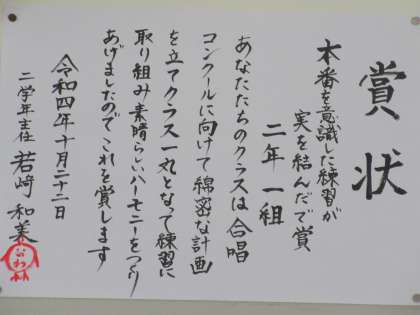 賞状
本番を意識した練習が
実を結んだで賞
二年一組
あなたたちのクラスは合唱
コンクールに向けて綿密な計画
を立てクラス一丸となって練習に
取り組み素晴らしいハーモニーをつくり
あげましたのでこれを賞します
令和四年十月二十二日
二学年主任 若崎 和美